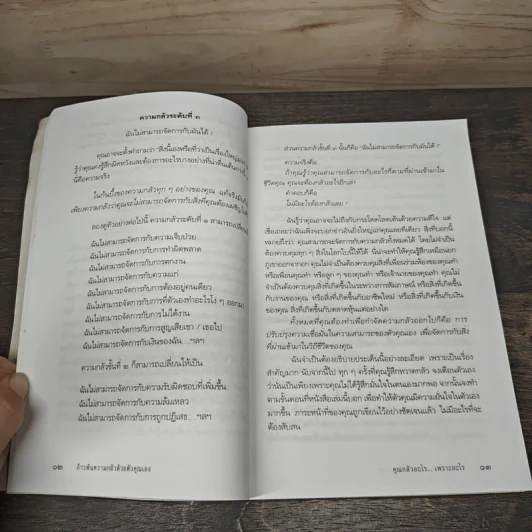 ความกลัวระดับที่ ๓
ฉันไม่สามารถจัดการกับมันได้ !
คุณอาจจะตั้งคำถามว่า "สิ่งนี้เองหรือที่ว่าเป็นเรื่องใหญ่
รู้ว่าคุณคงรู้สึกผิดหวังและต้องการอะไรบางอย่างที่น่าตื่นเต้นกว่านี้
นี่คือความจริง
ในก้นบึ้งของความกลัวทุก ๆ อย่างของคุณ แท้จริงมัน
เพียงความกลัวว่าคุณจะไม่สามารถจัดการกับสิ่งที่คุณต้องเผชิญ
ลองดูตัวอย่างต่อไปนี้ ความกลัวระดับที่ ๑ สามารถเปลี่ยน
ฉันไม่สามารถจัดการกับความเจ็บป่วย
ฉันไม่สามารถจัดการกับการทำผิดพลาด
ฉันไม่สามารถจัดการกับการตกงาน
ฉันไม่สามารถจัดการกับความแก่
ฉันไม่สามารถจัดการกับการต้องอยู่คนเดียว
ฉันไม่สามารถจัดการกับการที่ตัวเองทำอะไรโง่ ๆ ออกมา
ฉันไม่สามารถจัดการกับการไม่ได้งาน
ฉันไม่สามารถจัดการกับการสูญเสียเขา / เธอไป
ฉันไม่สามารถจัดการกับเงินของฉัน...ฯลฯ
ความกลัวขั้นที่ ๒ ก็สามารถเปลี่ยนให้เป็น
ฉันไม่สามารถจัดการกับความรับผิดชอบที่เพิ่มขึ้น
ฉันไม่สามารถจัดการกับความล้มเหลว
ฉันไม่สามารถจัดการกับการถูกปฏิเสธ...ฯลฯ
๑๒ ก้าวพ้นความกลัวด้วยตัวคุณเอง
ส่วนความกลัวขั้นที่ ๓ นั้นก็คือ "ฉันไม่สามารถจัดการกับมันได้ !"
ความจริงคือ
ถ้าคุณรู้ว่าคุณสามารถจัดการกับอะไรก็ตามที่ผ่านเข้ามาใน
ชีวิตคุณ คุณจะต้องกลัวอะไรอีกเล่า
คำตอบก็คือ
ไม่มีอะไรต้องกลัวเลย !
ฉันรู้ว่าคุณอาจจะไม่ถึงกับกระโดดโลดเต้นด้วยความดีใจ แต่
เชื่อเถอะว่าฉันเพิ่งจะบอกข่าวอันยิ่งใหญ่แก่คุณเลยทีเดียว สิ่งที่บอกนี้
หมายถึงว่า คุณสามารถจะจัดการกับความกลัวทั้งหมดได้ โดยไม่จำเป็น
ต้องควบคุมทุก ๆ สิ่งในโลกใบนี้ให้ได้ นี่น่าจะทำให้คุณรู้สึกเหมือนยก
ภูเขาออกจากอก คุณไม่จำเป็นต้องควบคุมสิ่งที่เพื่อนร่วมห้องของคุณทำ
หรือเพื่อนคุณทำ หรือลูก ๆ ของคุณทำ หรือเจ้านายของคุณทำ คุณไม่
จำเป็นต้องควบคุมสิ่งที่เกิดขึ้นในระหว่างการสัมภาษณ์ หรือสิ่งที่เกิดขึ้น
กับงานของคุณ หรือสิ่งที่เกิดขึ้นกับอาชีพใหม่ หรือสิ่งที่เกิดขึ้นกับเงิน
ของคุณ สิ่งที่เกิดขึ้นกับตลาดหุ้นแต่อย่างใด
ทั้งหมดที่คุณต้องทำเพื่อกำจัดความกลัวออกไปก็คือ การ
ปรับปรุงความเชื่อมั่นในความสามารถของตัวคุณเอง เพื่อจัดการกับสิ่ง
ที่ผ่านเข้ามาในวิถีชีวิตของคุณ
ฉันจำเป็นต้องอธิบายประเด็นนี้อย่างละเอียด เพราะเป็นเรื่อง
สำคัญมาก นับจากนี้ไป ทุก ๆ ครั้งที่คุณรู้สึกหวาดกลัว จงเตือนตัวเอง
ว่านั่นเป็นเพียงเพราะคุณไม่ได้รู้สึกมั่นใจในตนเองมากพอ จากนั้นจงทำ
ตามขั้นตอนที่หนังสือเล่มนี้บอก เพื่อทำให้ตัวคุณมีความมั่นใจในตัวเอง
มากขึ้น ภาระหน้าที่ของคุณถูกเขียนไว้อย่างชัดเจนแล้ว ไม่มีอะไรที่จะ
ต้องสับสน
คุณกลัวอะไร... เพราะอะไร ๑๓